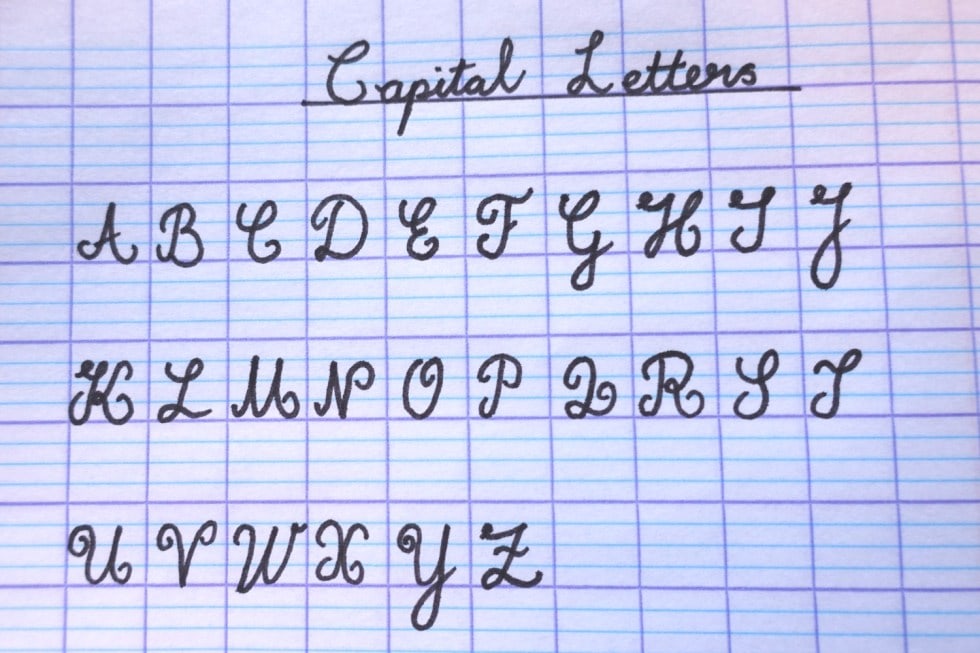 Capital Letters
A B C D E F G H I J
K L M N O P Q R S T
U V W X Y Z